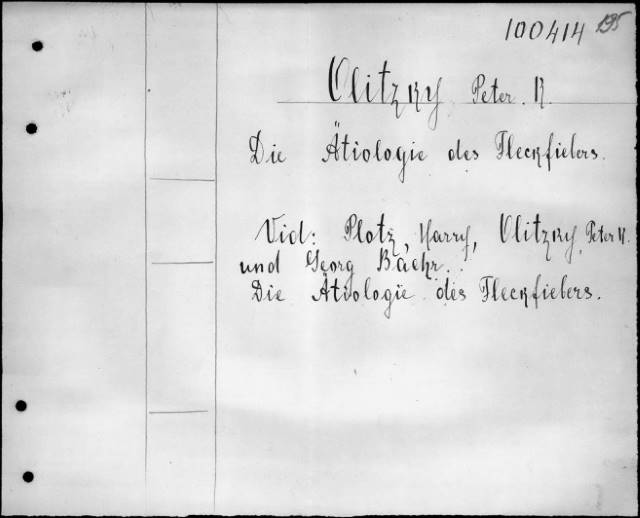 100414 195
Olitzky Peter. K.
Die Ätiologie des Fleckfiebers.
Vid: Plotz, Harry, Olitzky, Peter K.
und Georg Baehr.
Die Ätiologie des Fleckfiebers.